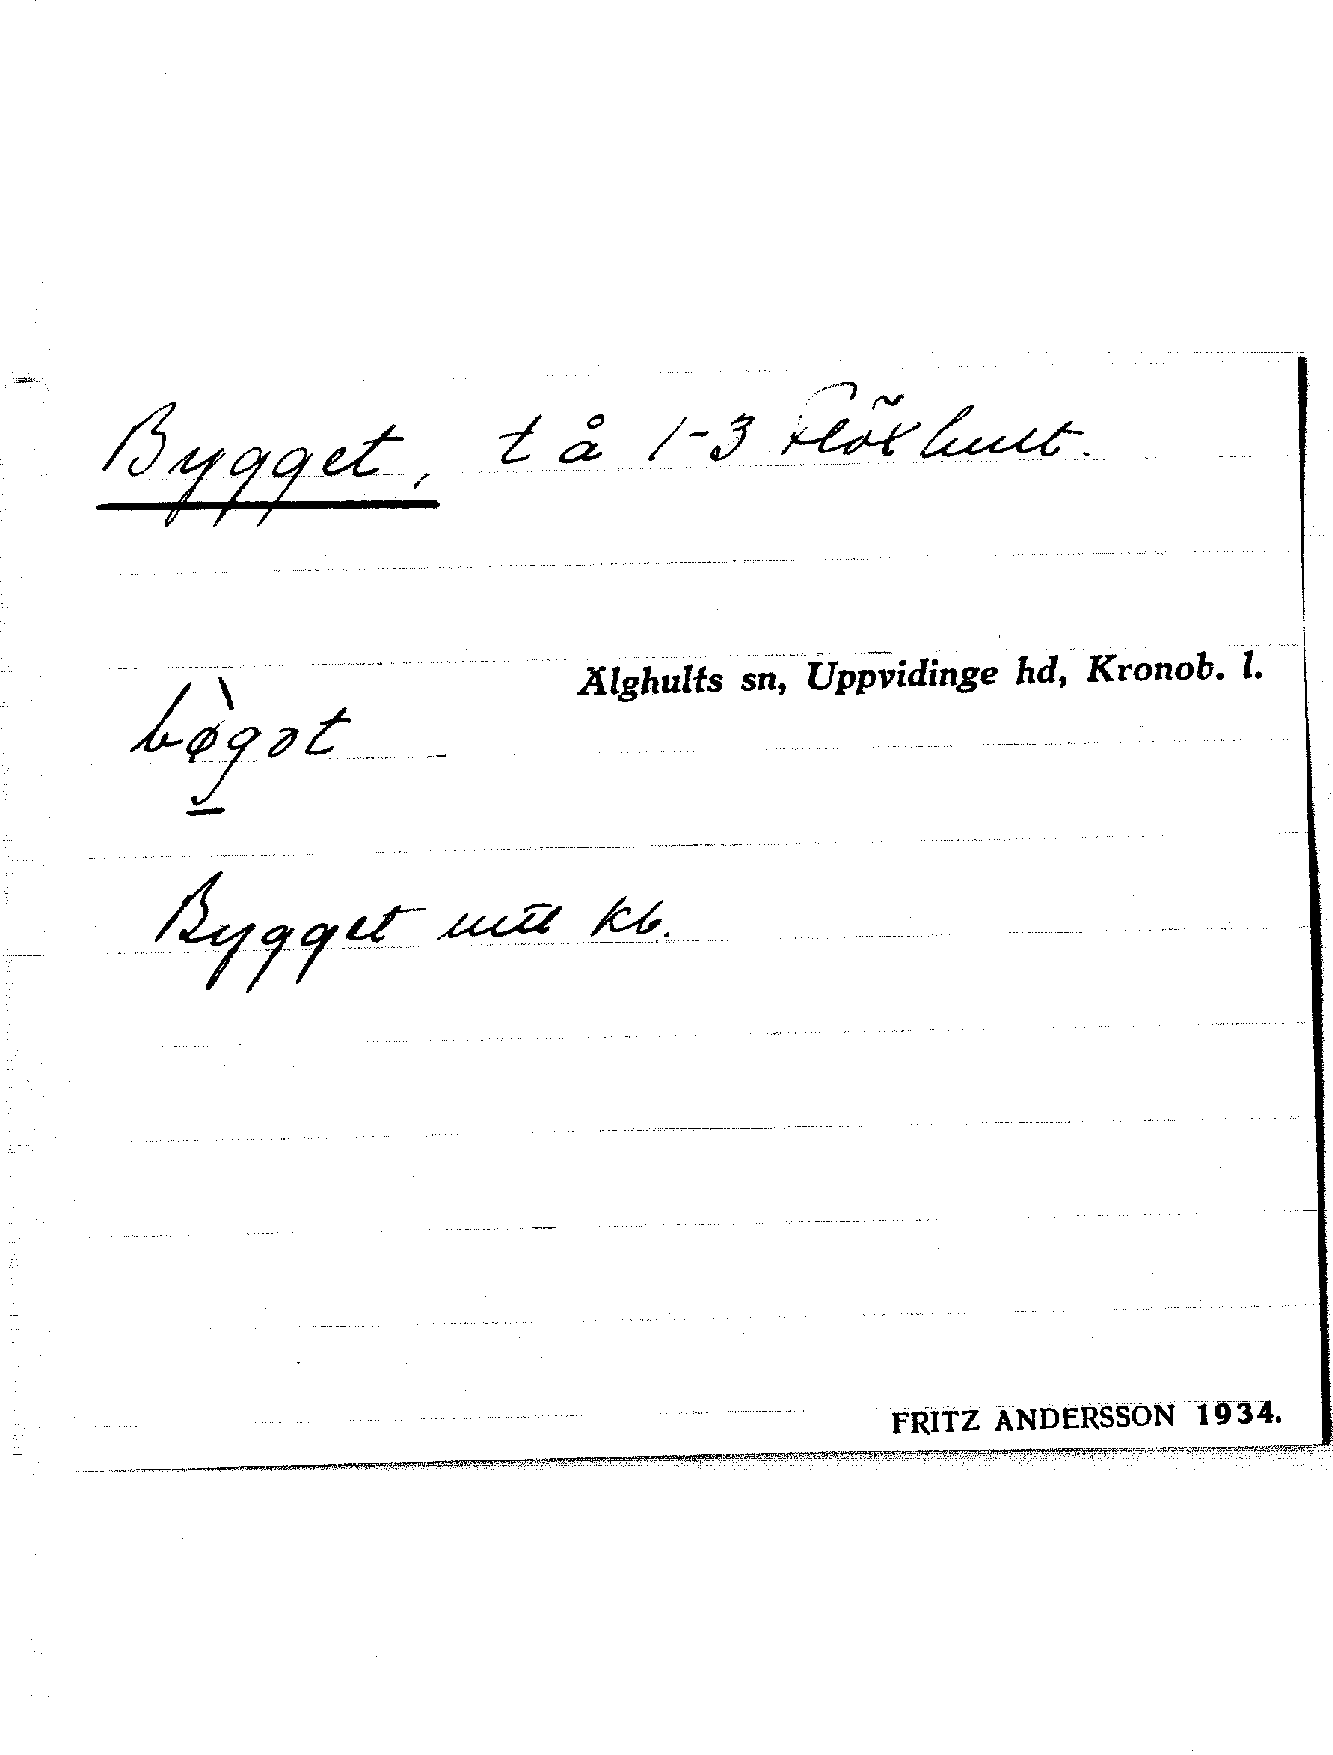 Bygget, t å 1-3 Flöxhult.
Älghults sn, Uppvidinge hd, Kronob. l.
bø̀gət
Bygget utt kb.
FRITZ ANDERSSON 1934.